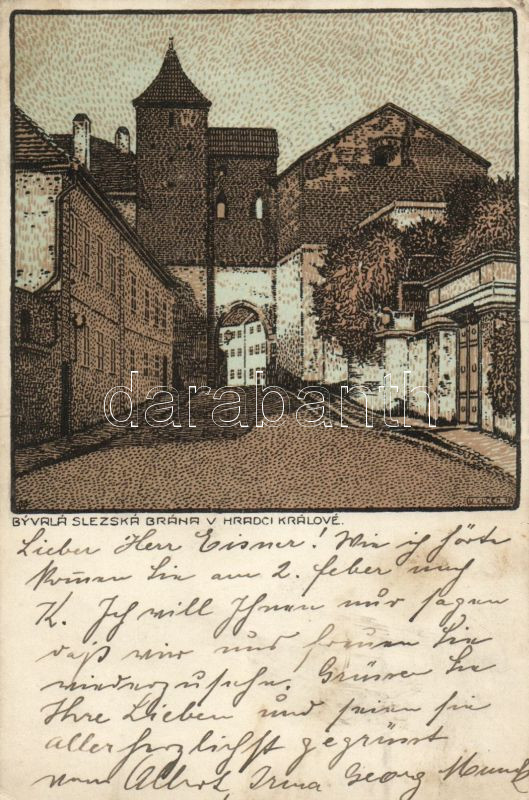 darabanth
BÝVALÁ SLEZSKÁ BRÁNA V HRADCI KRÁLOVÉ.
Lieber Herr Eisner! Wie ich hörte
komen Sie am 2. feber nach
K. Ich will Ihnen nur sagen
daß wir uns freuen Sie
wiederzusehn. Grüssen Sie
Ihre Lieben und seien sie
allerherzlichst gegrüsst
vom Albert, Irma Georg